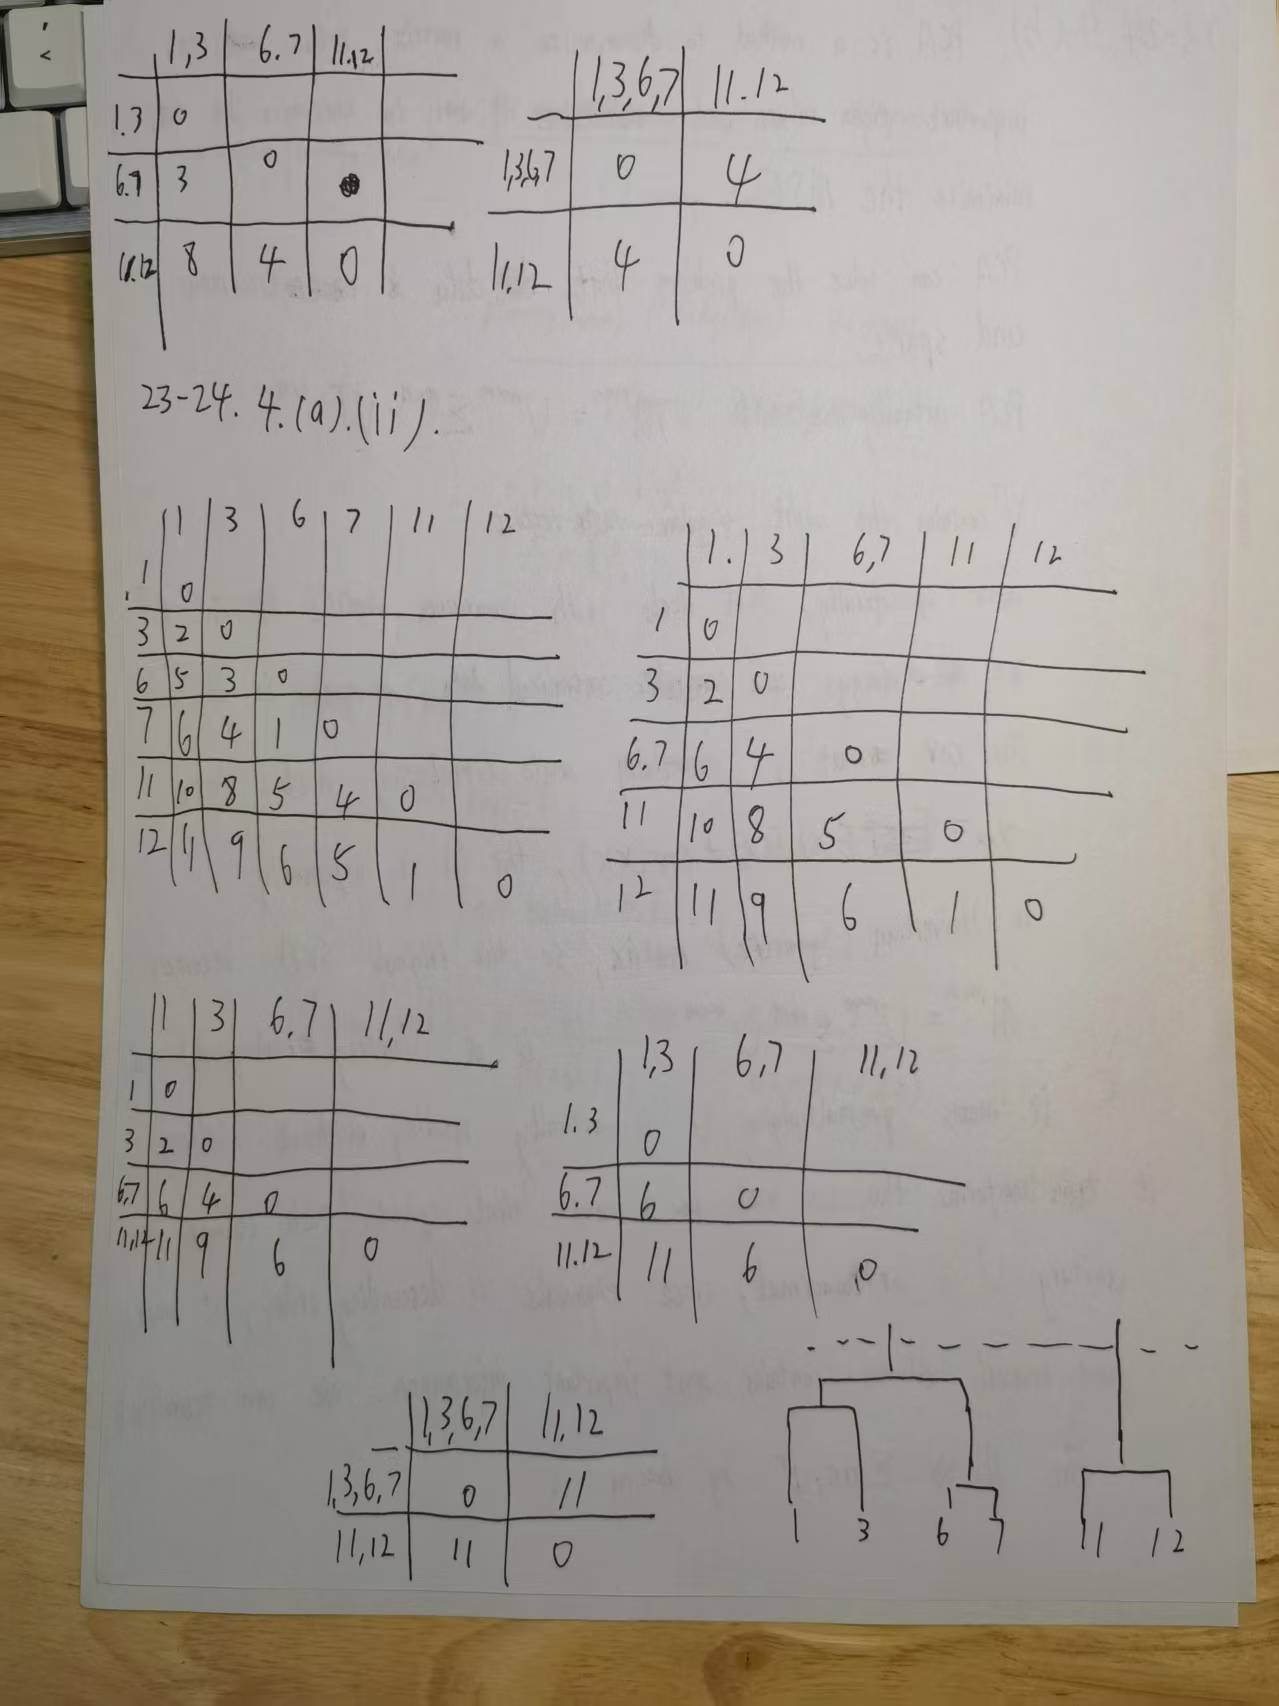 1,3 6.7 11.12
1.3 0
6.7 3 0
11.12 8 4 0
1,3,6,7 11.12
1,3,6,7 0 4
11.12 4 0
23-24. 4.(a).(ii).
1 3 6 7 11 12
1 0
3 2 0
6 5 3 0
7 6 4 1 0
11 10 8 5 4 0
12 11 9 6 5 1 0
1. 3 6,7 11 12
1 0
3 2 0
6.7 6 4 0
11 10 8 5 0
12 11 9 6 1 0
1 3 6.7 11,12
1 0
3 2 0
6,7 6 4 0
11,12 11 9 6 0
1,3 6,7 11,12
1.3 0
6.7 6 0
11.12 11 6 0
1,3,6,7 11,12
1,3,6,7 0 11
11,12 11 0
1 3 6 7 11 12